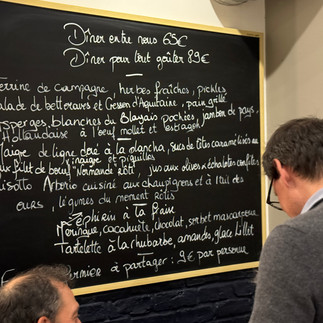 Dîner entre nous 65€
Dîner pour tout goûter 89€
Terrine de Campagne, herbes fraîches, pickles
Salade de betteraves et Cresson d'Aquitaine, pain grillé
Asperges blanches du Blayais pochées, jambon de pays,
Hollandaise à l'œuf mollet et estragon
Maigre de ligne doré à la plancha, sucs de têtes caramélisés au
vinaigre et piquillos
de bœuf "Normande rôti", jus aux olives & échalotes confites
Risotto Arborio cuisiné aux champignons et à l'ail des
ours, légumes du moment rôtis
à la
Meringue, cacahuète, chocolat, sorbet mascarpone
Tartelette à la rhubarbe, amandes, glace
à partager : 9€ par personne